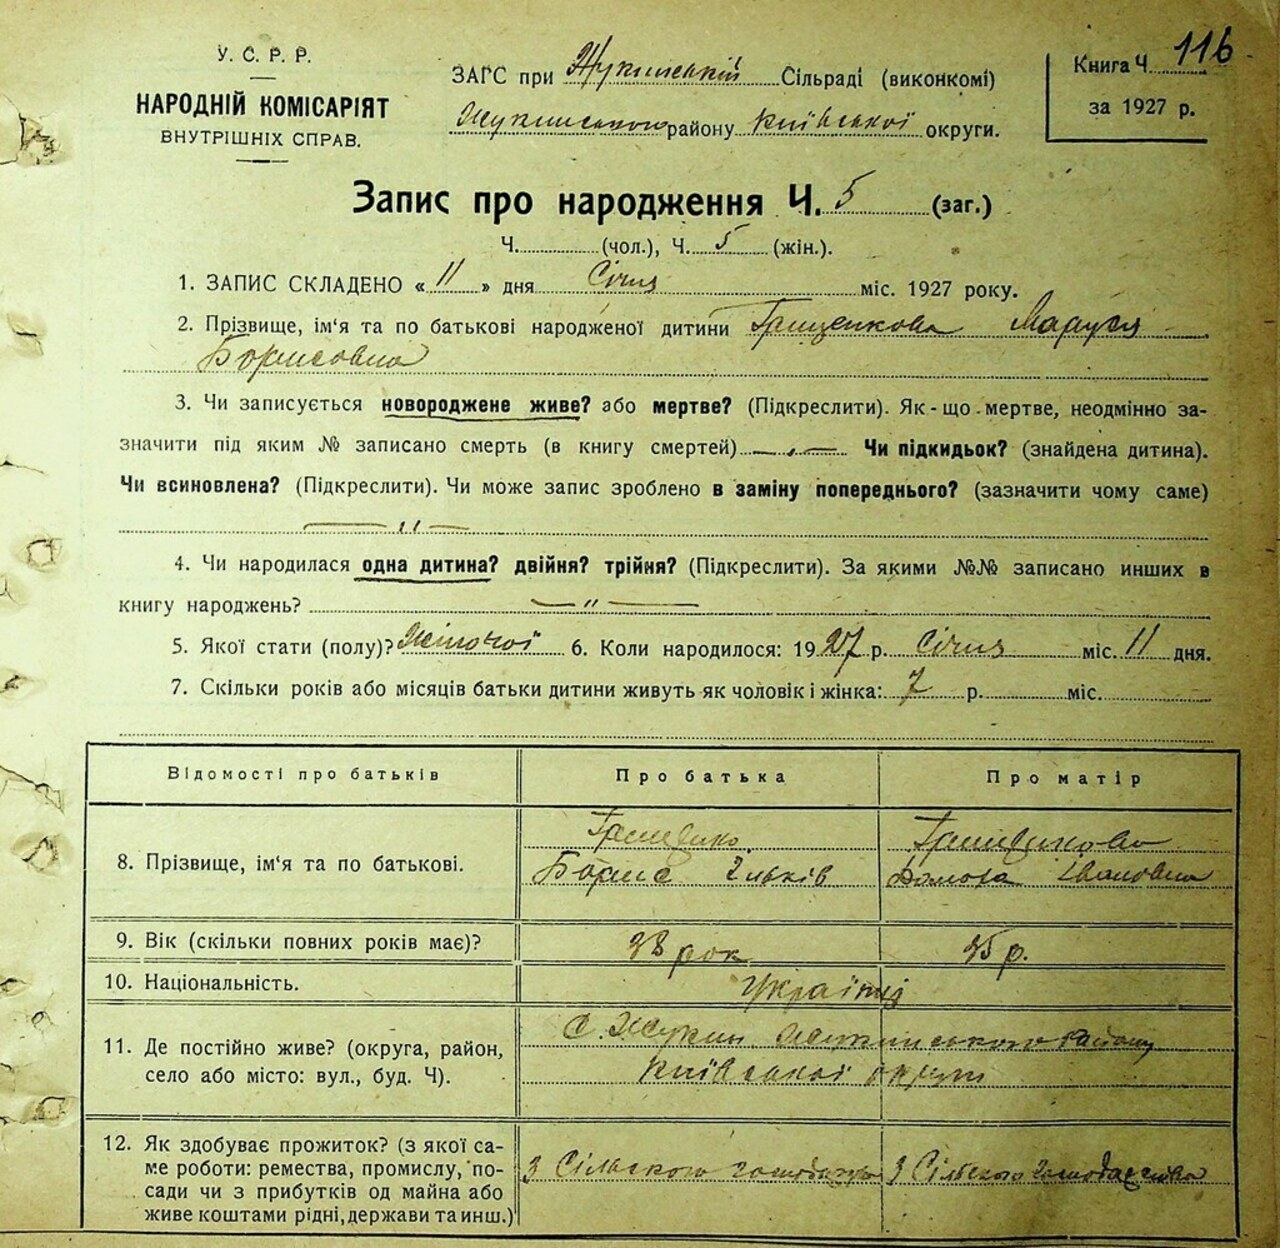 У. С. Р. Р.
НАРОДНІЙ КОМІСАРІЯТ
ВНУТРІШНІХ СПРАВ.
ЗАГС при Жукинській Сільраді (виконкомі)
Жукинського району Київської округи.
Книга Ч. 116
за 1927 р.
Запис про народження Ч. 5 (заг.)
Ч. (чол.), Ч. 5 (жін.).
1. ЗАПИС СКЛАДЕНО « 11 » дня Січня міс. 1927 року.
2. Прізвище, ім'я та по батькові народженої дитини Грищенкова Маруся
Борисовна
3. Чи записується новороджене живе? або мертве? (Підкреслити). Як-що мертве, неодмінно за-
значити під яким № записано смерть (в книгу смертей) Чи підкидьок? (знайдена дитина).
Чи всиновлена? (Підкреслити). Чи може запис зроблено в заміну попереднього? (зазначити чому саме)
— " —
4. Чи народилася одна дитина? двійня? трійня? (Підкреслити). За якими №№ записано инших в
книгу народжень? — " —
5. Якої стати (полу)? Жіночої 6. Коли народилося: 1927 р. Січня міс. 11 дня.
7. Скільки років або місяців батьки дитини живуть як чоловік і жінка: 7 р. міс.
Відомості про батьків Про батька Про матір
8. Прізвище, ім'я та по батькові. Грищенко Борис Ільків Грищенкова Ивановна
9. Вік (скільки повних років має)? 28 рок 25 р.
10. Національність. Українці
11. Де постійно живе? (округа, район,
село або місто: вул., буд. Ч).
С. Жукин Жукинського району
Київської округи
12. Як здобуває прожиток? (з якої са-
ме роботи: ремества, промислу, по-
сади чи з прибутків од майна або
живе коштами рідні, держави та инш.)
З Сільського господарства З Сільського господарства